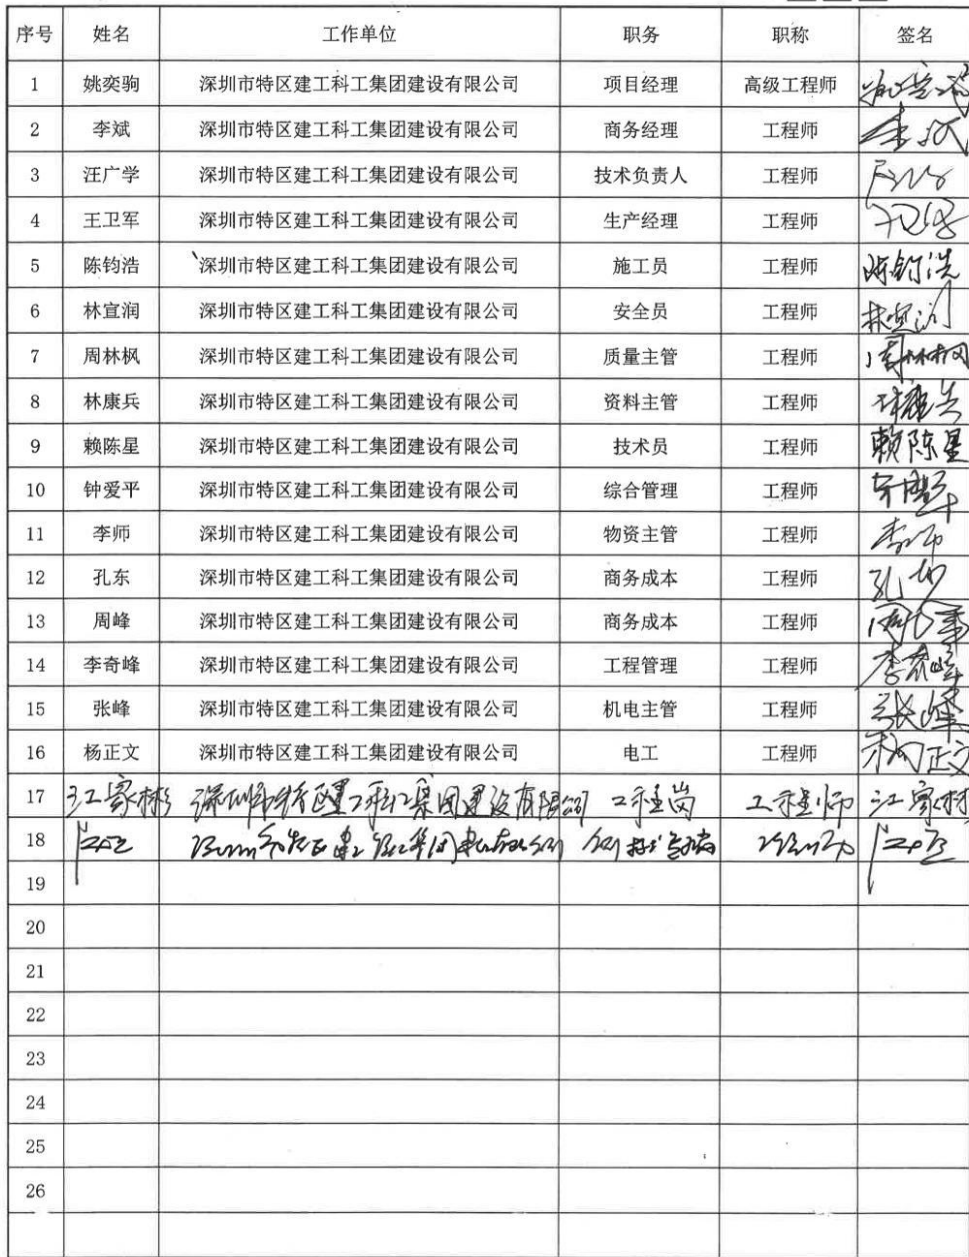 序号 姓名 工作单位 职务 职称 签名
1 姚奕驹 深圳市特区建工科工集团建设有限公司 项目经理 高级工程师
2 李斌 深圳市特区建工科工集团建设有限公司 商务经理 工程师 李斌
3 汪广学 深圳市特区建工科工集团建设有限公司 技术负责人 工程师
4 王卫军 深圳市特区建工科工集团建设有限公司 生产经理 工程师
5 陈钧浩 深圳市特区建工科工集团建设有限公司 施工员 工程师 陈钧浩
6 林宣润 深圳市特区建工科工集团建设有限公司 安全员 工程师 林宣润
7 周林枫 深圳市特区建工科工集团建设有限公司 质量主管 工程师 周林枫
8 林康兵 深圳市特区建工科工集团建设有限公司 资料主管 工程师 林康兵
9 赖陈星 深圳市特区建工科工集团建设有限公司 技术员 工程师 赖陈星
10 钟爱平 深圳市特区建工科工集团建设有限公司 综合管理 工程师
11 李师 深圳市特区建工科工集团建设有限公司 物资主管 工程师 李师
12 孔东 深圳市特区建工科工集团建设有限公司 商务成本 工程师
13 周峰 深圳市特区建工科工集团建设有限公司 商务成本 工程师
14 李奇峰 深圳市特区建工科工集团建设有限公司 工程管理 工程师 李奇峰
15 张峰 深圳市特区建工科工集团建设有限公司 机电主管 工程师 张峰
16 杨正文 深圳市特区建工科工集团建设有限公司 电工 工程师 杨正文
17 江家彬 深圳市特区建工科工集团建设有限公司 工程岗 工程师 江家彬
18
19
20
21
22
23
24
25
26